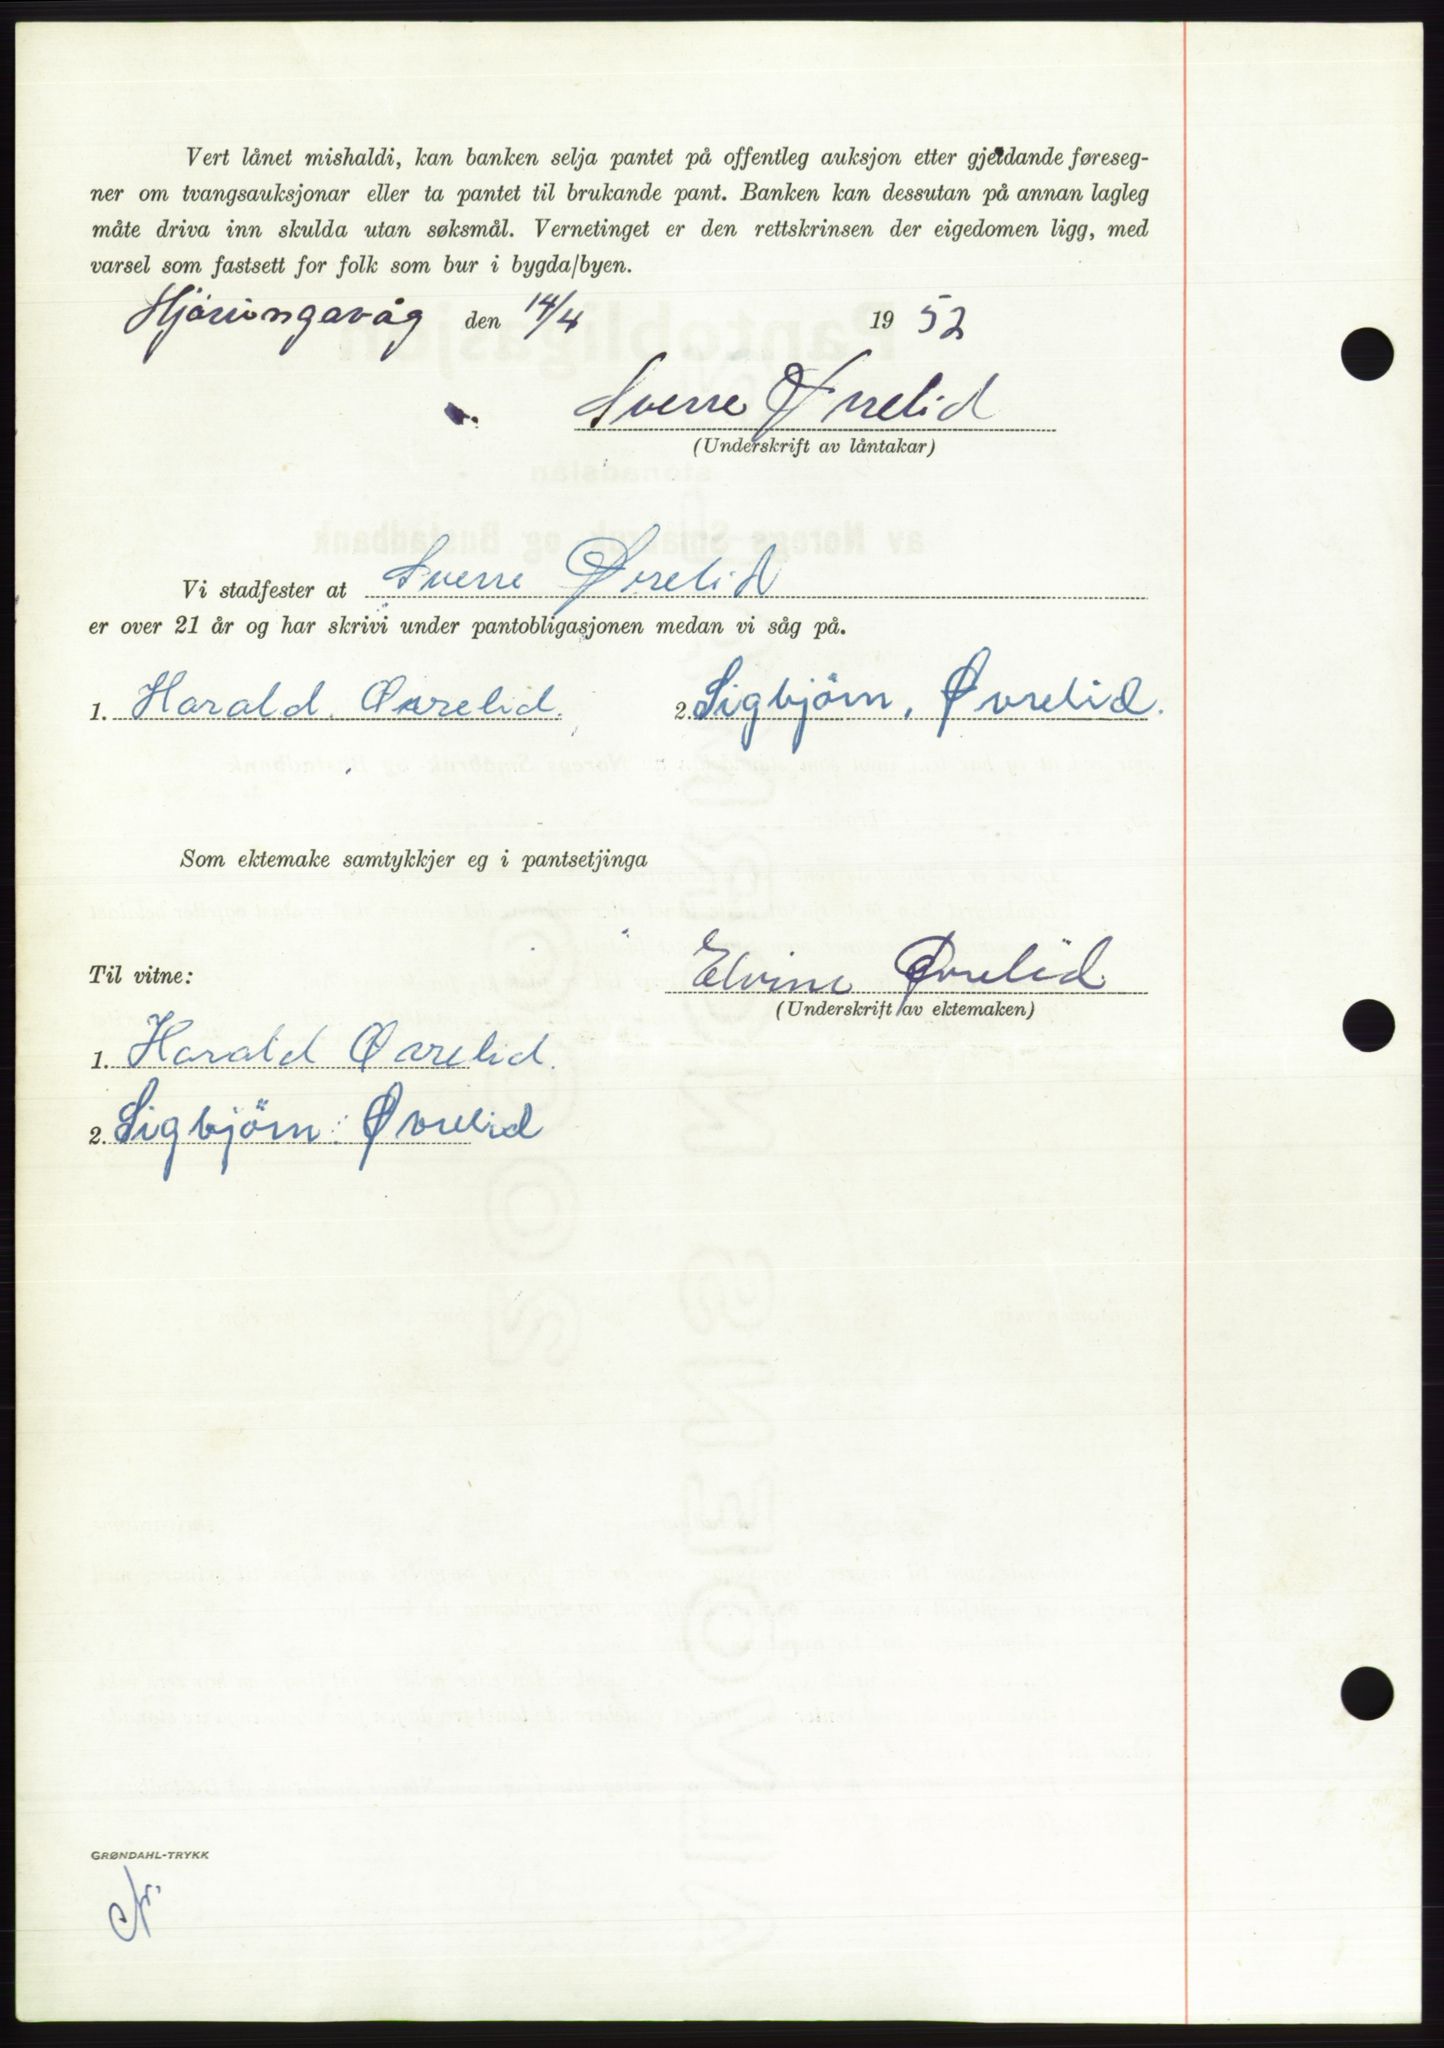 Vert lånet mishaldi, kan banken selja pantet på offentleg auksjon etter gjeldande føreseg-
ner om tvangsauksjonar eller ta pantet til brukande pant. Banken kan dessutan på annan lagleg
måte driva inn skulda utan søksmål. Vernetinget er den rettskrinsen der eigedomen ligg, med
varsel som fastsett for folk som bur i bygda/byen.
Hjørungavåg den 14/4 1952
Sverre Øvrelid
(Underskrift av låntakar)
Vi stadfester at Sverre Øvrelid
er over 21 år og har skrivi under pantobligasjonen medan vi såg på.
1. Harald Øvrelid. 2. Sigbjörn, Øvrelid.
Som ektemake samtykkjer eg i pantsetjinga
Til vitne: Elvine Øvrelid
(Underskrift av ektemaken)
1. Harald Øvrelid.
2. Sigbjörn Øvrelid
GRØNDAHL-TRYKK